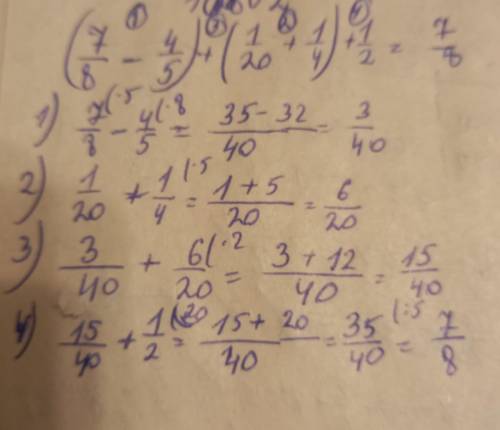 (7/8 - 4/5) + (1/20 + 1/4) + 1/2 = 7/8
1) 7/8(·5 - 4/5(·8 = 35-32/40 = 3/40
2) 1/20 + 1/4(·5 = 1+5/20 = 6/20
3) 3/40 + 6/20(·2 = 3+12/40 = 15/40
4) 15/40 + 1/2(·20 = 15+20/40 = 35/40(:5 = 7/8